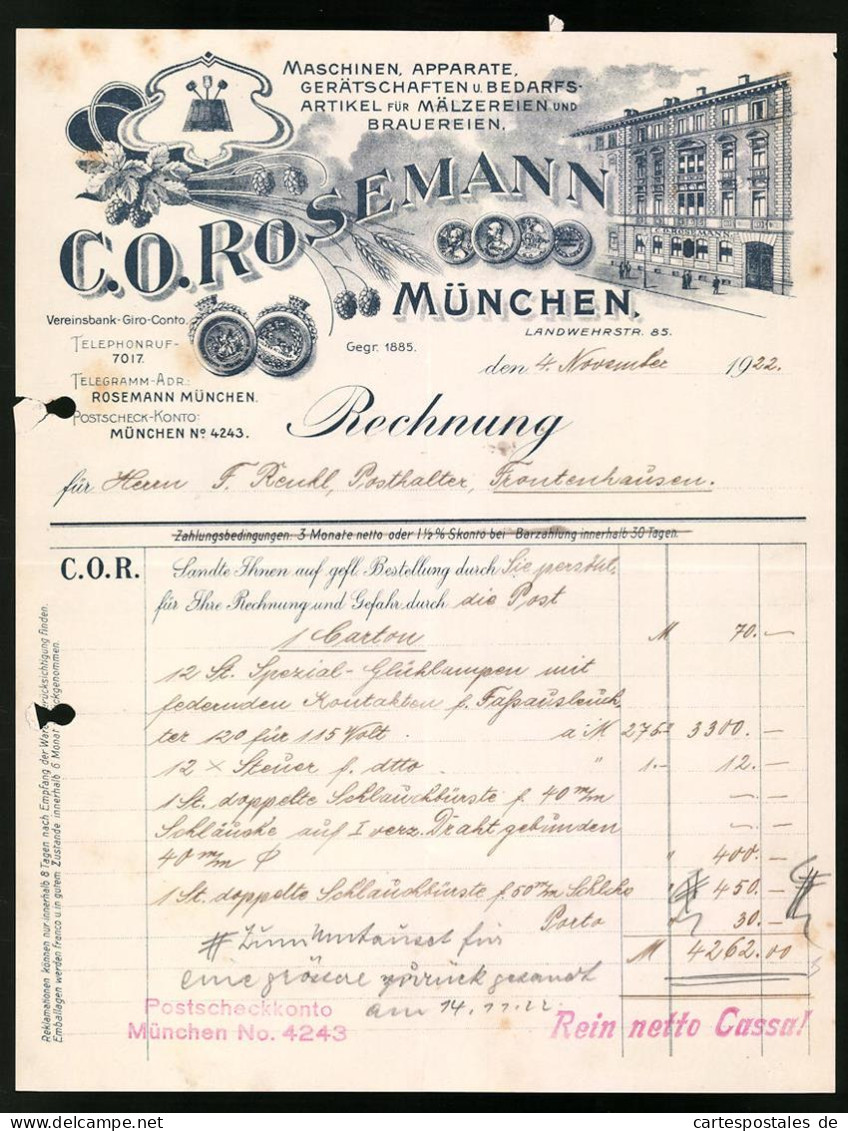 MASCHINEN, APPARATE,
GERÄTSCHAFTEN U. BEDARFS-
ARTIKEL FÜR MÄLZEREIEN UND
BRAUEREIEN.
C.O. ROSEMANN
C.O. ROSEMANN
MÜNCHEN.
LANDWEHRSTR. 85.
Vereinsbank-Giro-Conto.
TELEPHONRUF-
7017.
Gegr. 1885.
TELEGRAMM-ADR.:
ROSEMANN MÜNCHEN.
POSTSCHECK-KONTO:
MÜNCHEN No 4243.
den 4. November 1922.
Rechnung
für Herrn F. Renkl, Posthalter, Frontenhausen.
Zahlungsbedingungen: 3 Monate netto oder 1½% Skonto bei Barzahlung innerhalb 30 Tagen.
C.O.R. Sandte Ihnen auf gefl. Bestellung durch Sie persönl.
für Ihre Rechnung und Gefahr durch die Post
1 Carton M 70.—
12 St. Spezial-Glühlampen mit
federnden Kontakten f. Faßausleuch-
ter 120 für 115 Volt. a M 275.— 3300.—
12 x Steuer f. dtto " 1.— 12.—
1 St. doppelte Schlauchbürste f. 40 m/m
Schläuche auf I verz. Draht gebunden
40 m/m Ø " 400.—
1 St. doppelte Schlauchbürste f. 50 m/m " # 450.— #
Porto 30.—
M 4262.00
# Zum Umtausch für
eine grössere zurück gesandt
am 14.11.22.
Postscheckkonto
München No. 4243
Rein netto Cassa!
Reklamationen können nur innerhalb 8 Tagen nach Empfang der Ware Berücksichtigung finden.
Emballagen werden franco u. in gutem Zustande innerhalb 6 Monat zurückgenommen.
www.cartespostales.de
cartespostales de